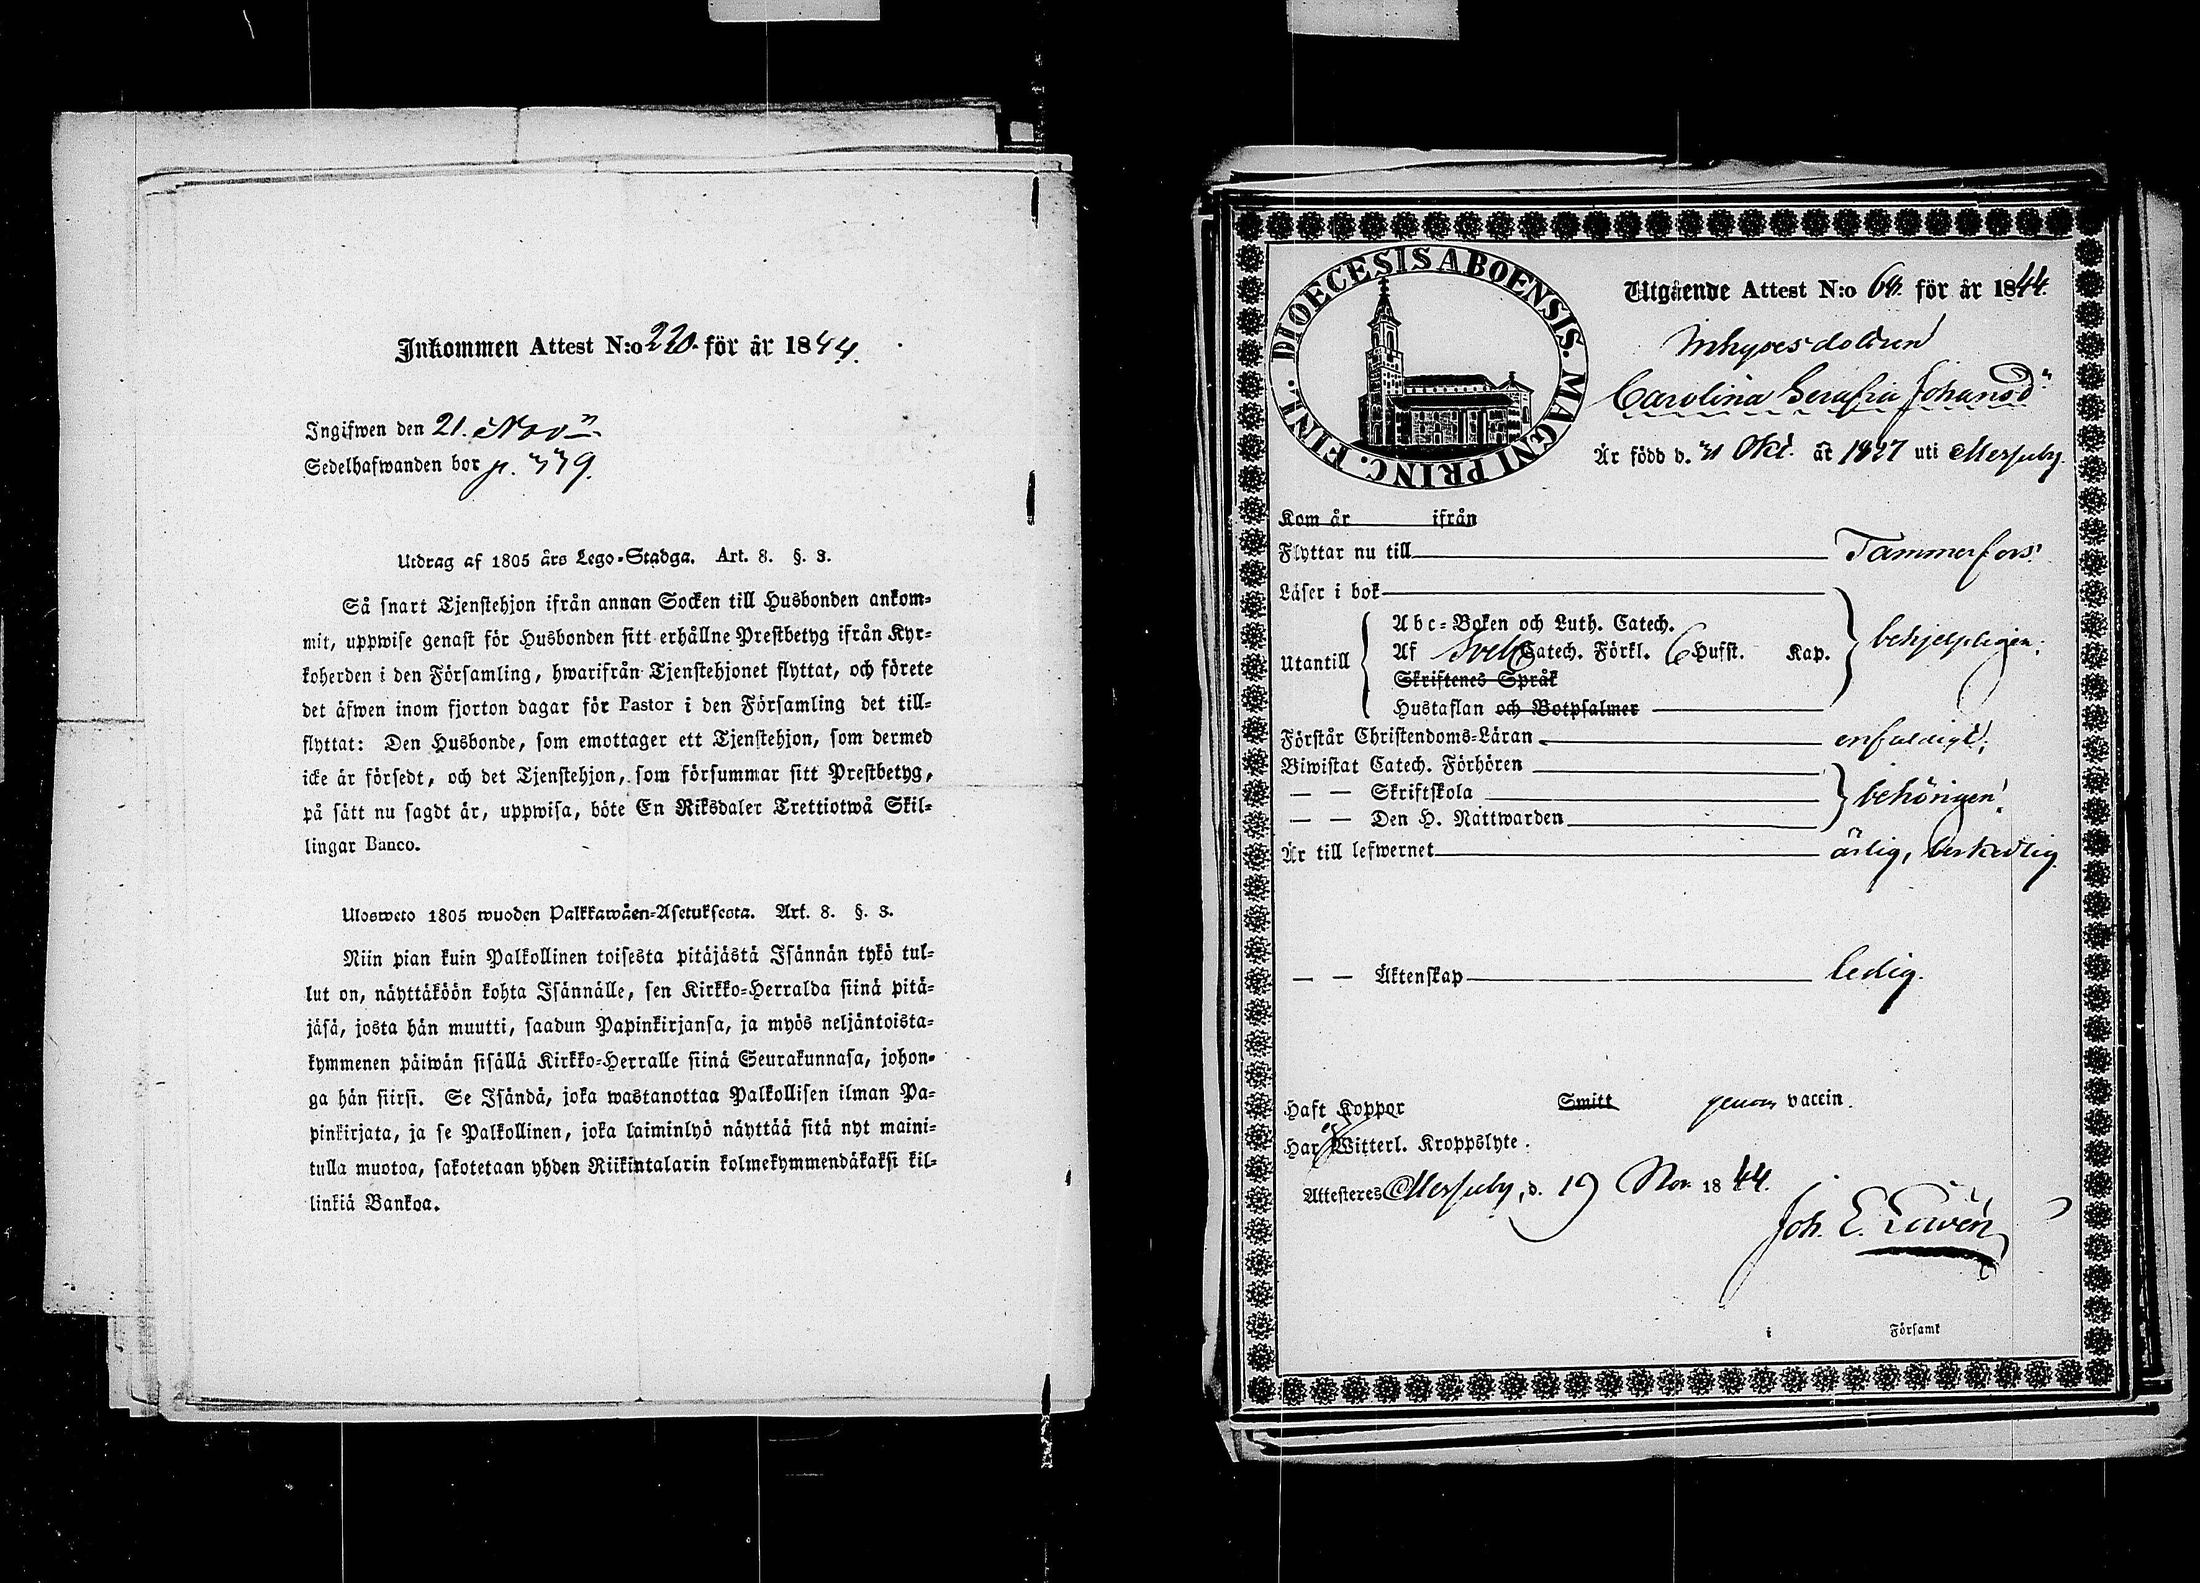 Inkommen Attest N:o 220. för år 1844.
Ingifwen den 21. Nov
Sedelhafwanden bor p. 339.
Utdrag af 1805 års Lego-Stadga. Art. 8. §. 3.
Så snart Tjenstehjon ifrån annan Socken till Husbonden ankom-
mit, uppwise genast för Husbonden sitt erhållne Prestbetyg ifrån Kyr-
koherden i den Församling, hwarifrån Tjenstehjonet flyttat, och förete
det äfwen inom fjorton dagar för Pastor i den Församling det till-
flyttat: Den Husbonde, som emottager ett Tjenstehjon, som dermed
icke är försedt, och det Tjenstehjon, som försummar sitt Prestbetyg,
på sätt nu sagdt är, uppwisa, böte En Riksdaler Trettiotwå Skil-
lingar Banco.
Ulosweto 1805 wuoden Palkkawäen-Asetuksesta. Art. 8. §. 3.
Niin pian kuin Palkollinen toisesta pitäjästä Isännän tykö tul-
lut on, näyttäköön kohta Isännälle, sen Kirkko-Herralda siinä pitä-
jäsä, josta hän muutti, saadun Papinkirjansa, ja myös neljäntoista-
kymmenen päiwän sisällä Kirkko-Herralle siinä Seurakunnasa, johon-
ga hän siirsi. Se Isändä, joka wastanottaa Palkollisen ilman Pa-
pinkirjata, ja se Palkollinen, joka laiminlyö näyttää sitä nyt maini-
tulla muotoa, sakotetaan yhden Riikintalarin kolmekymmendäkaksi kil-
linkiä Bankoa.
DIOECESIS ABOENSIS. MAGNI PRINC. FINL.
Utgående Attest N:o 64. för år 1844.
Inhysesdottren
Carolina Serafia Johansd:
Är född d. 31 Okt. år 1827 uti Messuby.
Kom år ifrån
Flyttar nu till Tammerfors
Läser i bok
Abc-Boken och Luth. Catech.
Utantill Af Sveb. Catech. Förkl. 6 Hufst. Kap. behjelpligen;
Skriftenes Språk
Hustaflan och Botpsalmer
Förstår Christendoms-Läran enfaldigt;
Biwistat Catech. Förhören
— — Skriftskola behörigen;
— — Den H. Nattwarden
Är till lefwernet ärlig, beskedlig
— — Äktenskap ledig.
Haft Koppor Smitt genom vaccin.
Har ej Witterl. Kroppslyte.
Attesteres Messuby, d. 19 Nov. 1844.
Joh. E. Lovén
i Församl